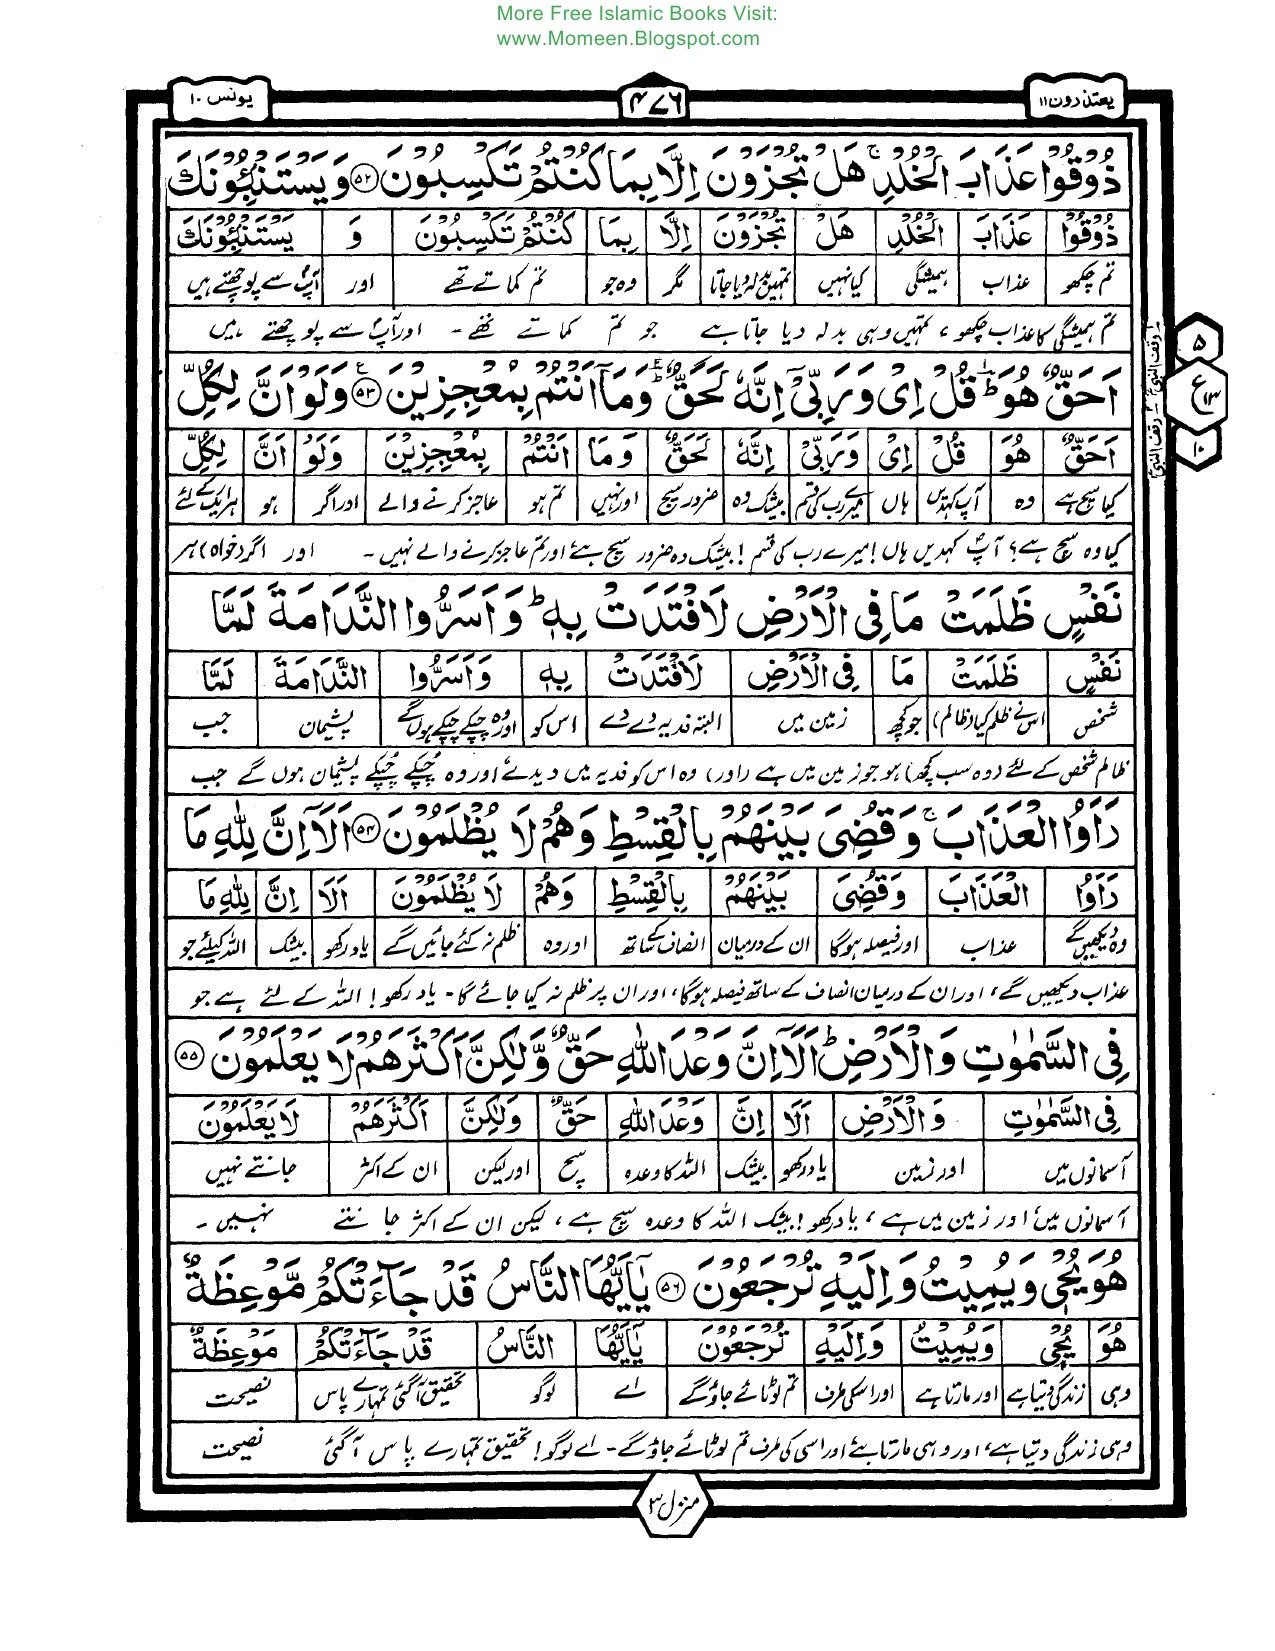 More Free Islamic Books Visit:
www.Momeen.Blogspot.com
یعتذرون ۱۱
۴۷۶
یونس ۱۰
ذُوْقُوْا عَذَابَ الْخُلْدِ ۚ هَلْ تُجْزَوْنَ اِلَّا بِمَا كُنْتُمْ تَكْسِبُوْنَ ۵۲ وَيَسْتَنْۢبِـُٔوْنَكَ
ذُوْقُوْا عَذَابَ الْخُلْدِ هَلْ تُجْزَوْنَ اِلَّا بِمَا كُنْتُمْ تَكْسِبُوْنَ وَ يَسْتَنْۢبِـُٔوْنَكَ
تم چکھو عذاب ہمیشگی کیا نہیں تمہیں بدلہ دیا جاتا مگر وہ جو تم کماتے تھے اور آپؐ سے پوچھتے ہیں
تم ہمیشگی کا عذاب چکھو، تمہیں وہی بدلہ دیا جاتا ہے جو تم کماتے تھے۔ اور آپؐ سے پوچھتے ہیں
اَحَقٌّ هُوَ ؕ قُلْ اِیْ وَرَبِّیْۤ اِنَّهٗ لَحَقٌّ ؕ وَمَاۤ اَنْتُمْ بِمُعْجِزِيْنَ ۵۳ وَلَوْ اَنَّ لِكُلِّ
اَحَقٌّ هُوَ قُلْ اِیْ وَرَبِّیْۤ اِنَّهٗ لَحَقٌّ وَمَاۤ اَنْتُمْ بِمُعْجِزِيْنَ وَلَوْ اَنَّ لِكُلِّ
کیا سچ ہے وہ آپ کہدیں ہاں میرے رب کی قسم بیشک وہ ضرور سچ اور نہیں تم ہو عاجز کرنے والے اور اگر ہو ہر ایک کے لئے
کیا وہ سچ ہے؟ آپؐ کہدیں ہاں! میرے رب کی قسم! بیشک وہ ضرور سچ ہے، اور تم عاجز کرنے والے نہیں۔ اور اگر (خواہ) ہر
نَفْسٍ ظَلَمَتْ مَا فِی الْاَرْضِ لَافْتَدَتْ بِهٖ ؕ وَاَسَرُّوا النَّدَامَةَ لَمَّا
نَفْسٍ ظَلَمَتْ مَا فِی الْاَرْضِ لَافْتَدَتْ بِهٖ وَاَسَرُّوا النَّدَامَةَ لَمَّا
شخص (اس نے ظلم کیا (ظالم) جو کچھ زمین میں البتہ فدیہ دے دے اس کو اور وہ چپکے چپکے ہوں گے پشیمان جب
ظالم شخص کے لئے (وہ سب کچھ) ہو جو زمین میں ہے (اور) وہ اس کو فدیہ میں دیدے، اور وہ چپکے چپکے پشیمان ہوں گے جب
رَاَوُا الْعَذَابَ ۚ وَقُضِیَ بَيْنَهُمْ بِالْقِسْطِ وَهُمْ لَا يُظْلَمُوْنَ ۵۴ اَلَاۤ اِنَّ لِلّٰهِ مَا
رَاَوُا الْعَذَابَ وَقُضِیَ بَيْنَهُمْ بِالْقِسْطِ وَهُمْ لَا يُظْلَمُوْنَ اَلَا اِنَّ لِلّٰهِ مَا
وہ دیکھیں گے عذاب اور فیصلہ ہوگا ان کے درمیان انصاف کے ساتھ اور وہ ظلم نہ کئے جائیں گے یاد رکھو بیشک اللہ کیلئے جو
عذاب دیکھیں گے، اور ان کے درمیان انصاف کے ساتھ فیصلہ ہوگا، اور ان پر ظلم نہ کیا جائے گا۔ یاد رکھو! اللہ کے لئے ہے جو
فِی السَّمٰوٰتِ وَالْاَرْضِ ؕ اَلَاۤ اِنَّ وَعْدَ اللّٰهِ حَقٌّ وَّلٰكِنَّ اَكْثَرَهُمْ لَا يَعْلَمُوْنَ ۵۵
فِی السَّمٰوٰتِ وَالْاَرْضِ اَلَا اِنَّ وَعْدَ اللّٰهِ حَقٌّ وَلٰكِنَّ اَكْثَرَهُمْ لَا يَعْلَمُوْنَ
آسمانوں میں اور زمین یاد رکھو بیشک اللہ کا وعدہ سچ اور لیکن ان کے اکثر جانتے نہیں
آسمانوں میں، اور زمین میں ہے، یاد رکھو! بیشک اللہ کا وعدہ سچ ہے، لیکن ان کے اکثر جانتے نہیں۔
هُوَ يُحْیٖ وَيُمِيْتُ وَاِلَيْهِ تُرْجَعُوْنَ ۵۶ يٰۤاَيُّهَا النَّاسُ قَدْ جَآءَتْكُمْ مَّوْعِظَةٌ
هُوَ يُحْیٖ وَيُمِيْتُ وَاِلَيْهِ تُرْجَعُوْنَ يٰۤاَيُّهَا النَّاسُ قَدْ جَآءَتْكُمْ مَوْعِظَةٌ
وہی زندگی دیتا ہے اور مارتا ہے اور اسکی طرف تم لوٹائے جاؤگے اے لوگو تحقیق آگئی تمہارے پاس نصیحت
وہی زندگی دیتا ہے، اور وہی مارتا ہے، اور اسی کی طرف تم لوٹائے جاؤ گے۔ اے لوگو! تحقیق تمہارے پاس آگئی نصیحت
وقف النبیؐ
وقف النبیؐ
۵
ع ۱۳
۱۰
منزل ۳